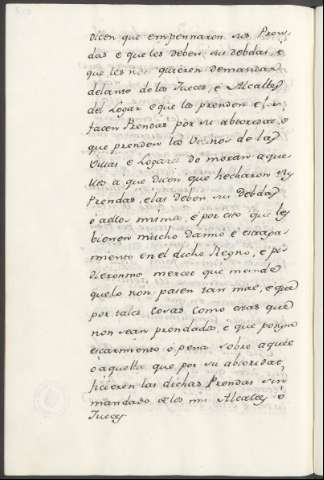 dicen que empennaron sus Pren-
das e que les deben sus debdas, e
que les non quieren demandar
delante de los Jueces, e Alcalles
del Logar e que la prenden e les
facen Prendas por su abtoridad, o
que prenden los Vecinos de las
Villas e Logares do moran aque-
llos a que dicen que hecharon las
Prendas, e las deben sus Debdas
o a ellos mismos, e por esto que les
bienen mucho danno e estraga-
miento en el dicho Regno, e pi-
dieronme merced que mande
que lo non pasen tan mal, e que
por tales cosas como estas que
non sean prendados, e que ponga
escarmiento o pena sobre aquel
o aquellos que por su abtoridat
ficieren las dichas Prendas sin
mandado de los mis Alcalles o
Jueces